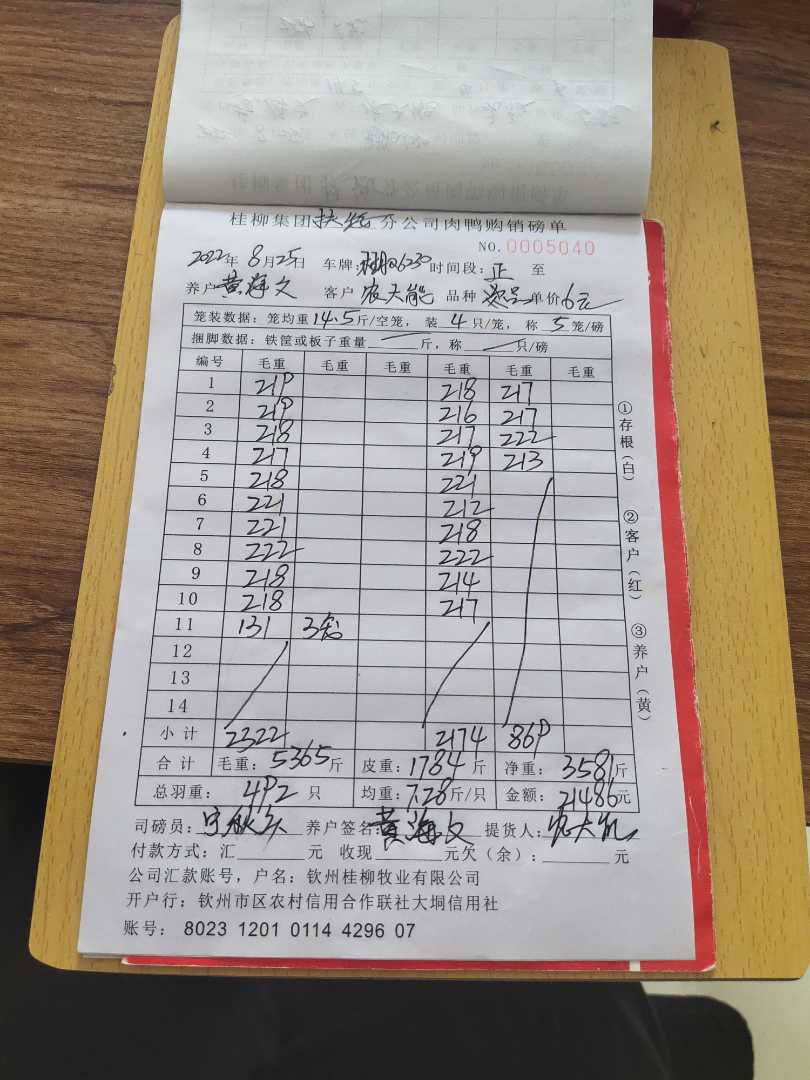 桂柳集团扶绥分公司肉鸭购销磅单
NO.0005040
2022年8月25日 车牌:桂R06230 时间段:正 至
养户黄海文 客户农天能 品种 单价6元
笼装数据:笼均重14.5斤/空笼,装4只/笼,称5笼/磅
捆脚数据:铁筐或板子重量 斤,称 只/磅
编号 毛重 毛重 毛重 毛重 毛重 毛重
1 219 218 217
2 219 216 217
3 218 217 222
4 217 219 213
5 218 221
6 221 212
7 221 218
8 222 222
9 218 214
10 218 217
11 131 3
12
13
14
小计 2322 2174 869
合计 毛重:5365斤 皮重:1784斤 净重:3581斤
总羽重:492只 均重:7.28斤/只 金额:21486元
司磅员: 养户签名:黄海文 提货人:农天能
付款方式:汇 元 收现 元欠(余): 元
公司汇款账号,户名:钦州桂柳牧业有限公司
开户行:钦州市区农村信用合作联社大垌信用社
账号:8023 1201 0114 4296 07
①存根(白)
②客户(红)
③养户(黄)